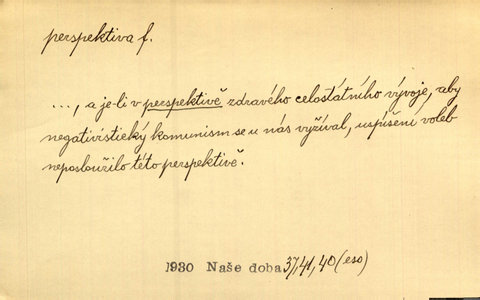 perspektiva f.
..., a je-li v perspektivě zdravého celostátního vývoje, aby
negativistický komunism se u nás vyžíval, uspíšení voleb
neposloužilo této perspektivě.
1930 Naše doba 37,41,40 (eso)